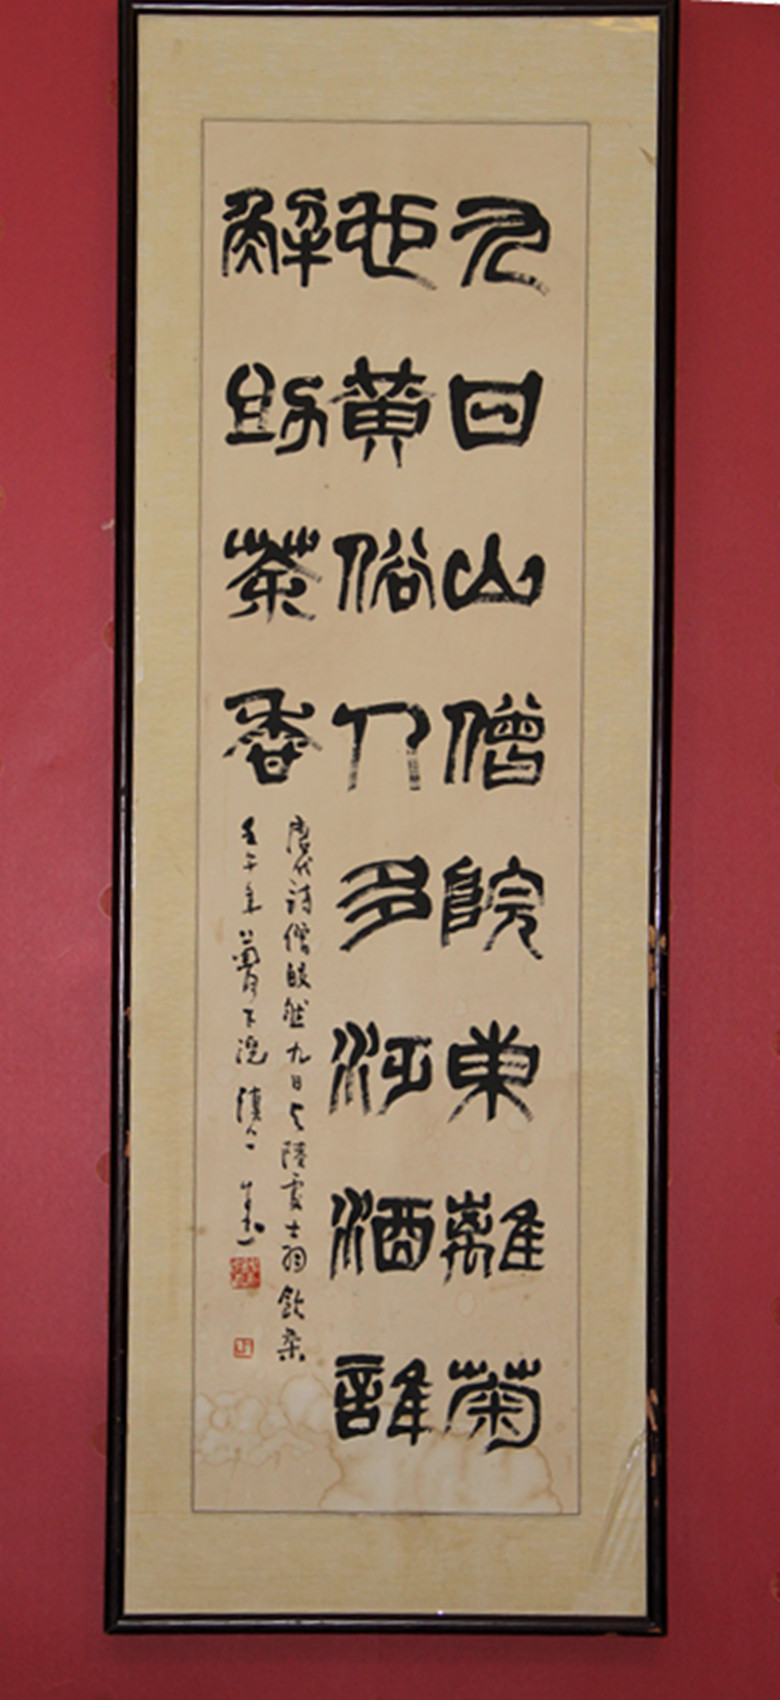 九日山僧院東離菊
也黄俗人多泛酒誰
解助茶香
唐代詩僧皎然九日与陸處士羽飲茶
壬午年菊月下浣